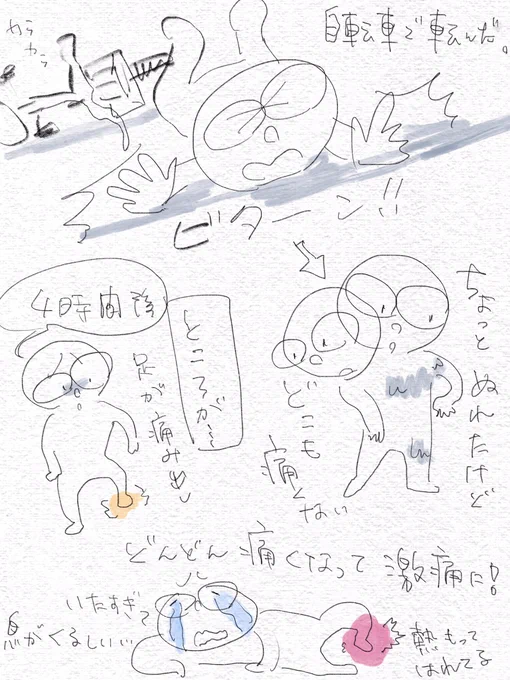 自転車で転んだ。
カラカラ
ビターン!!
ちょっとぬれたけど
どこも痛くない
4時間後
ところが…
足が痛み出し
どんどん痛くなって激痛に!!
いたすぎて
息がくるしい…
熱もって
はれてる